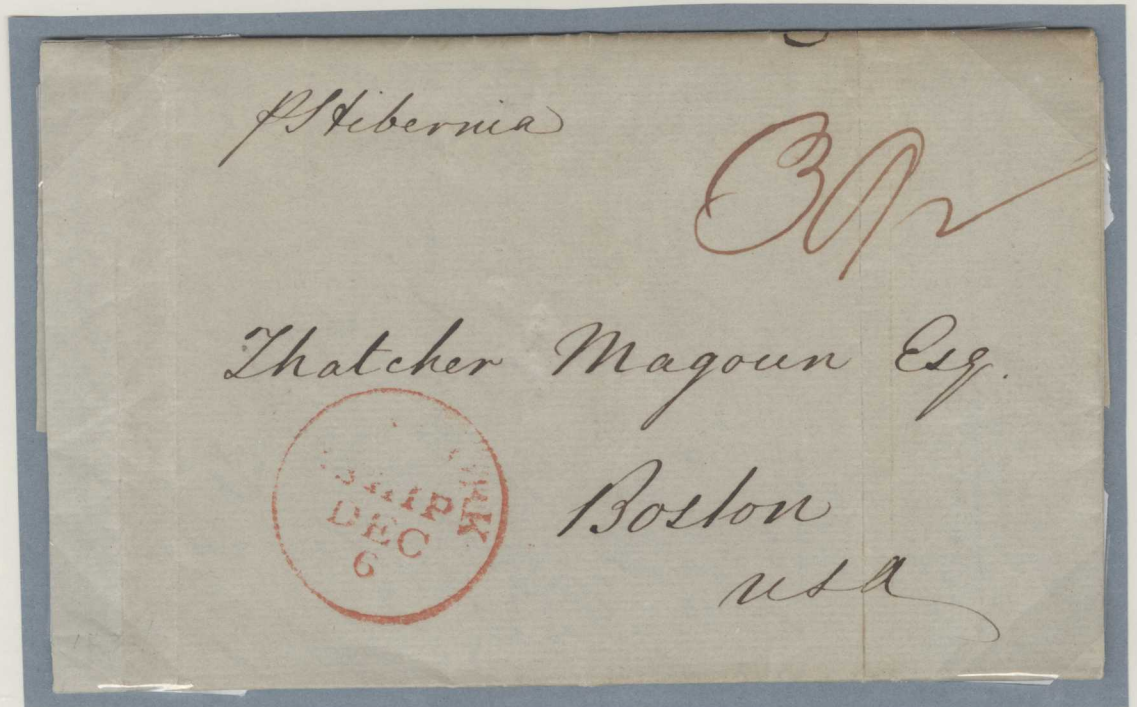 p Hibernia
Thatcher Magoun Esq.
Boston
usa
SHIP
DEC
6